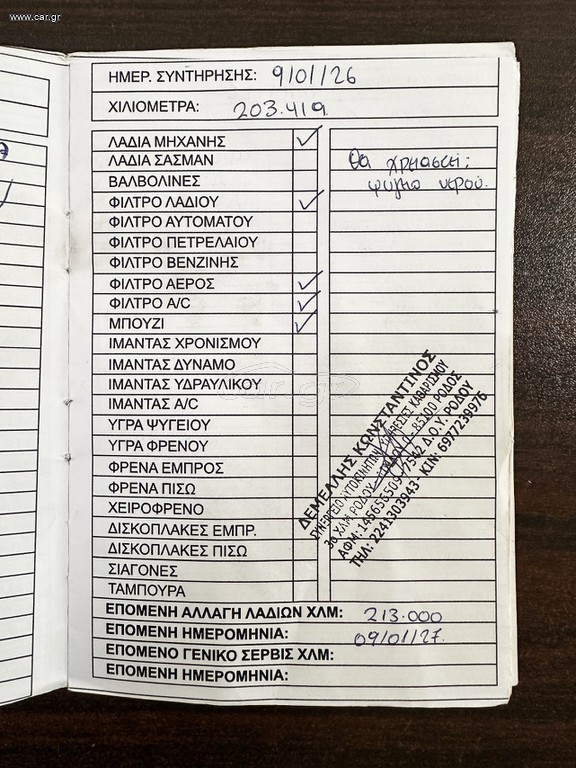 www.car.gr
ΗΜΕΡ. ΣΥΝΤΗΡΗΣΗΣ: 9/01/26
ΧΙΛΙΟΜΕΤΡΑ: 203.419
ΛΑΔΙΑ ΜΗΧΑΝΗΣ ✓
ΛΑΔΙΑ ΣΑΣΜΑΝ
ΒΑΛΒΟΛΙΝΕΣ
ΦΙΛΤΡΟ ΛΑΔΙΟΥ ✓
ΦΙΛΤΡΟ ΑΥΤΟΜΑΤΟΥ
ΦΙΛΤΡΟ ΠΕΤΡΕΛΑΙΟΥ
ΦΙΛΤΡΟ ΒΕΝΖΙΝΗΣ
ΦΙΛΤΡΟ ΑΕΡΟΣ ✓
ΦΙΛΤΡΟ A/C ✓
ΜΠΟΥΖΙ ✓
ΙΜΑΝΤΑΣ ΧΡΟΝΙΣΜΟΥ
ΙΜΑΝΤΑΣ ΔΥΝΑΜΟ
ΙΜΑΝΤΑΣ ΥΔΡΑΥΛΙΚΟΥ
ΙΜΑΝΤΑΣ A/C
ΥΓΡΑ ΨΥΓΕΙΟΥ
ΥΓΡΑ ΦΡΕΝΟΥ
ΦΡΕΝΑ ΕΜΠΡΟΣ
ΦΡΕΝΑ ΠΙΣΩ
ΧΕΙΡΟΦΡΕΝΟ
ΔΙΣΚΟΠΛΑΚΕΣ ΕΜΠΡ.
ΔΙΣΚΟΠΛΑΚΕΣ ΠΙΣΩ
ΣΙΑΓΟΝΕΣ
ΤΑΜΠΟΥΡΑ
θα χρειαστεί:
ψυγείο νερού.
car.gr
ΔΕΜΕΛΛΗΣ ΚΩΝΣΤΑΝΤΙΝΟΣ
ΣΥΝΕΡΓΕΙΟ ΑΥΤΟΚΙΝΗΤΩΝ ΚΑΘΑΡΙΣΜΟΥ
3ο ΧΛΜ ΡΟΔΟΥ 85100 ΡΟΔΟΣ
ΑΦΜ: Δ.Ο.Υ. ΡΟΔΟΥ
ΤΗΛ: 2241303943 - ΚΙΝ: 6977239976
ΕΠΟΜΕΝΗ ΑΛΛΑΓΗ ΛΑΔΙΩΝ ΧΛΜ: 213.000
ΕΠΟΜΕΝΗ ΗΜΕΡΟΜΗΝΙΑ: 09/01/27.
ΕΠΟΜΕΝΟ ΓΕΝΙΚΟ ΣΕΡΒΙΣ ΧΛΜ:
ΕΠΟΜΕΝΗ ΗΜΕΡΟΜΗΝΙΑ: